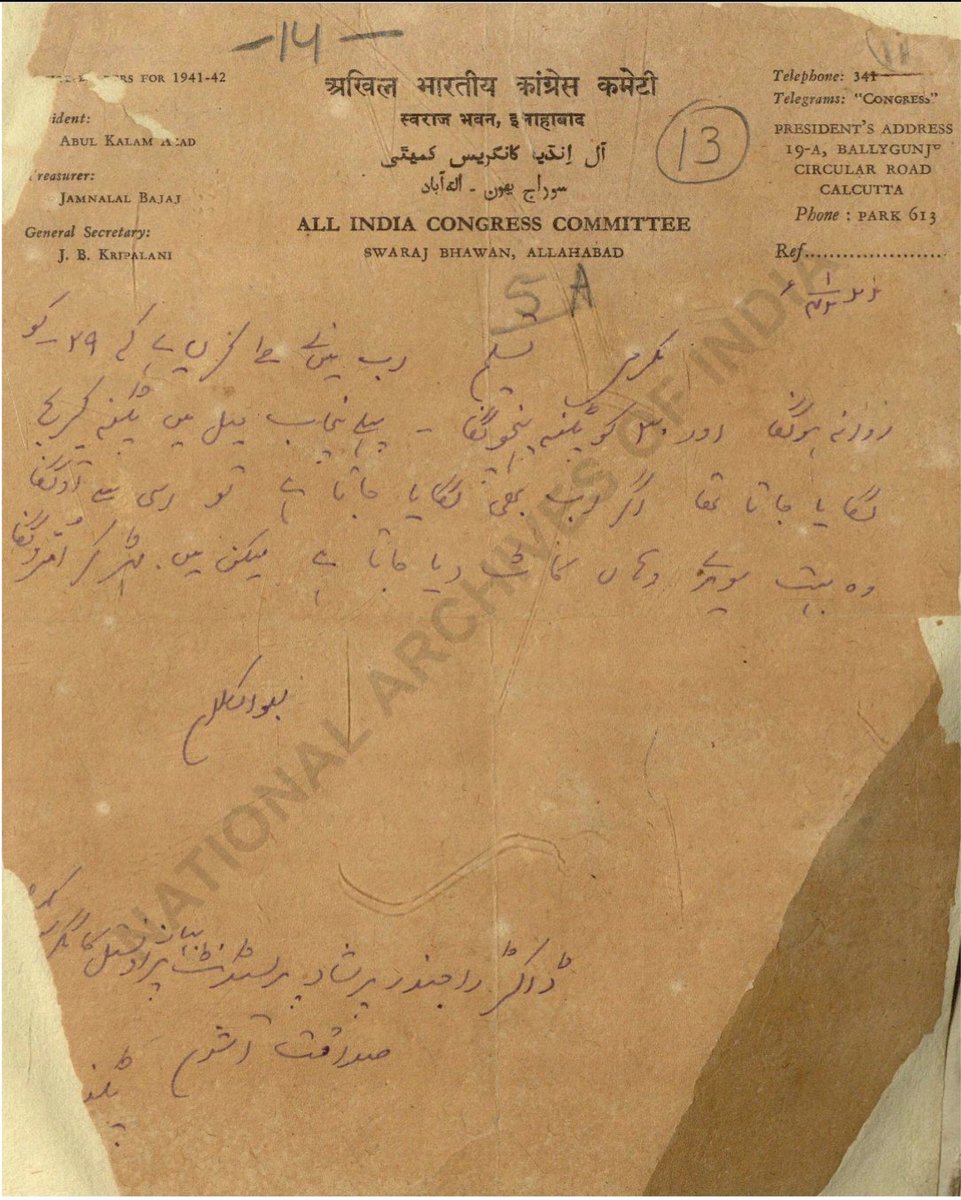 -14-
11
FOR 1941-42
ident:
ABUL KALAM AZAD
reasurer:
JAMNALAL BAJAJ
General Secretary:
J. B. KRIPALANI
अखिल भारतीय कांग्रेस कमेटी
स्वराज भवन, इलाहाबाद
آل اِنڈیا کانگریس کمیٹی
سوراج بھون - الہ آباد
ALL INDIA CONGRESS COMMITTEE
SWARAJ BHAWAN, ALLAHABAD
13
Telephone: 341
Telegrams: "CONGRESS"
PRESIDENT'S ADDRESS
19-A, BALLYGUNJE
CIRCULAR ROAD
CALCUTTA
Phone : PARK 613
Ref.
5 A
تسلیم اب میں نے طے کر لیا ہے کہ ۲۹ - کو
روانہ ہونگا اور ۳۰ کو پٹنہ پہنچونگا - پہلے پنجاب میل میں پٹنہ کیریج
لگایا جاتا تھا اگر اب بھی لگایا جاتا ہے تو اسی سے آونگا
وہ بہت سویرے وہاں کاٹ دیا جاتا ہے لیکن میں ٹھہر کر اُترونگا
ابوالکلام
ڈاکٹر راجندر پرشاد پریسیڈنٹ پراونشل کانگریس
صداقت آشرم پٹنہ
NATIONAL ARCHIVES OF INDIA